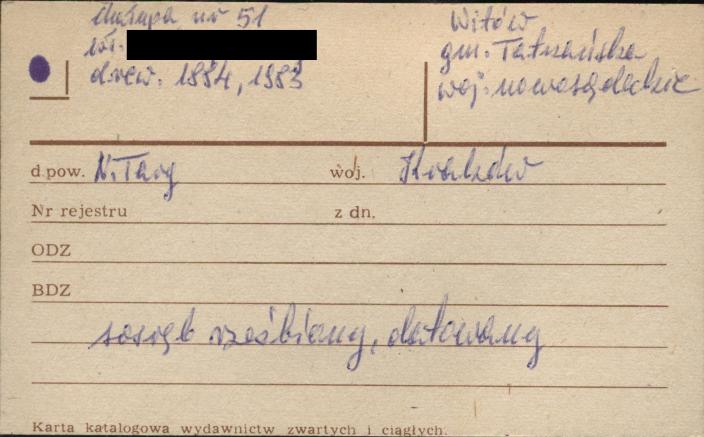 chałupa nr 51
wł.
drew. 1884, 1983
Witów
gm. Tatrzańska
woj. nowosądeckie
d pow. N. Targ woj. Kraków
Nr rejestru z dn.
ODZ
BDZ
sosręb rzeźbiony, datowany
Karta katalogowa wydawnictw zwartych i ciągłych.